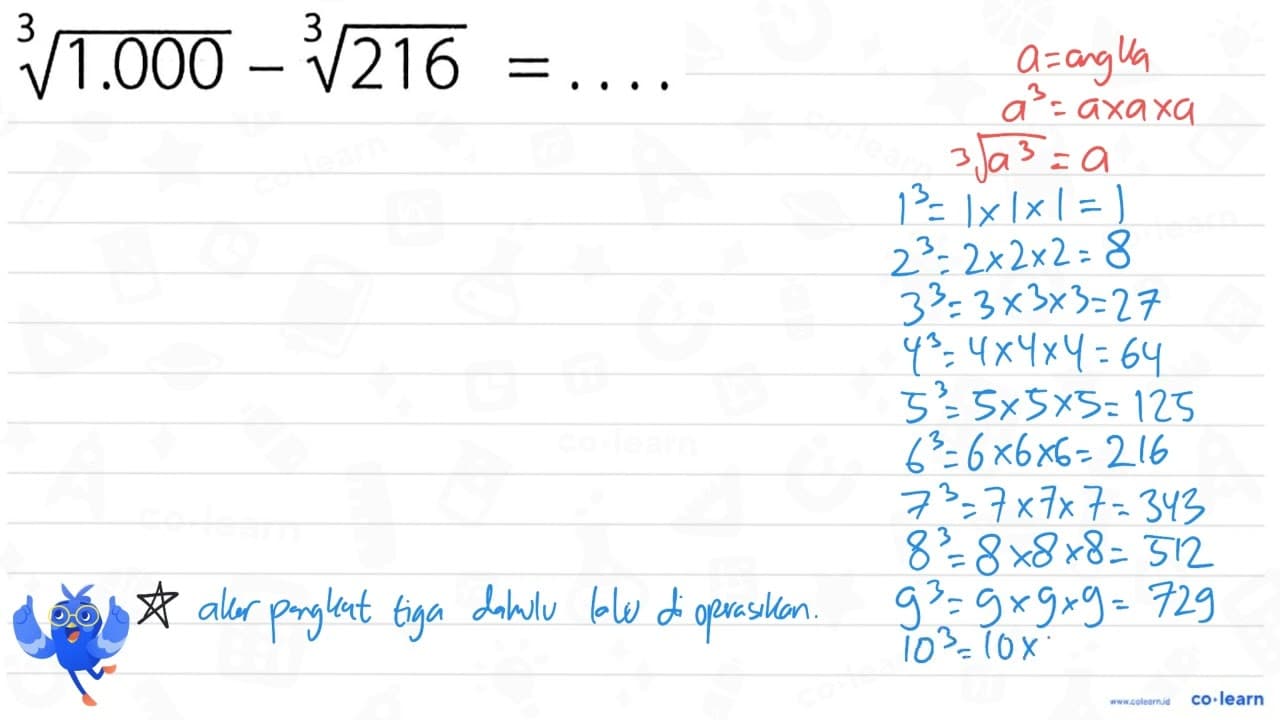 ∛1.000 - ∛216 = ....
a = angka
a³ = a×a×a
³√a³ = a
1³ = 1×1×1 = 1
2³ = 2×2×2 = 8
3³ = 3×3×3 = 27
4³ = 4×4×4 = 64
5³ = 5×5×5 = 125
6³ = 6×6×6 = 216
7³ = 7×7×7 = 343
8³ = 8×8×8 = 512
9³ = 9×9×9 = 729
10³ = 10×
☆ akar pangkat tiga dahulu lalu di operasikan.
www.colearn.id co·learn